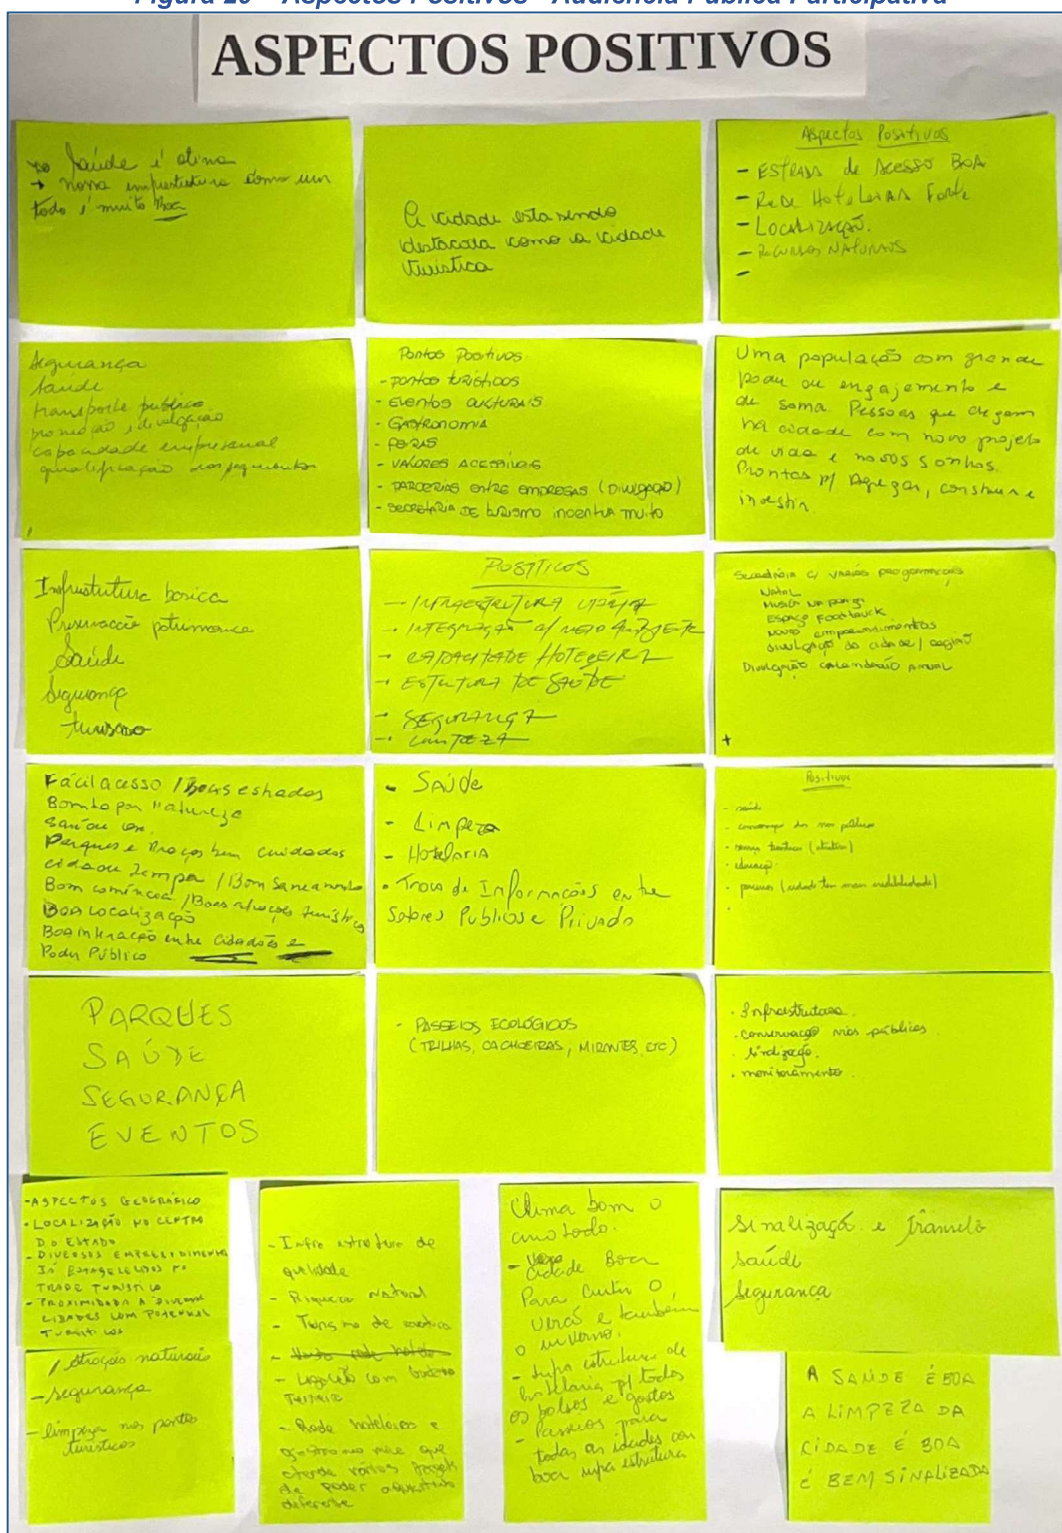 Aspectos Positivos - Audiência Pública Participativa
ASPECTOS POSITIVOS
Saúde é otima
nossa como um
todo é muito Boa
A cidade esta sendo
como a cidade
turistica
Aspectos Positivos
- ESTRADA de ACESSO BOA
- REDE HoteLeiRAS Forte
- LOCALIZAÇÃO.
- RECURSOS NATURAIS
-
Segurança
saude
transporte publico
promoção e divulgação
capacidade empresarial
qualificação dos
Pontos Positivos.
- pontos turísticos
- EVENTOS CULTURAIS
- GASTRONOMIA
- FEIRAS
- VALORES ACESSÍVEIS
- PARCERIAS entre EMPRESAS (DIVULGAÇÃO)
- SECRETARIA DE turismo incentiva muito
Uma população com grande
poder de engajamento e
de soma. Pessoas que chegam
na cidade com novo projeto
de vida e novos sonhos.
Prontas p/ Agregar, construir e
investir.
basica
Preservação
Saúde
Segurança
turismo
POSITIVOS
- INFRAESTRUTURA
- INTEGRAÇÃO C/ MEIO AMBIENTE
- CAPACIDADE HOTELEIRA
- DE SAÚDE
- SEGURANÇA
- LIMPEZA
Secretaria c/ varias programações
NATAL
MUSICA NA
ESPAÇO Foodtruck
NOVOS empreendimentos
divulgação da cidade / região
DIVULGAÇÃO calendário ANUAL
+
Fácil acesso / Boas estradas
Bonito por natureza
Saúde
Parques e Praças bem cuidados
cidade Limpa / Bom Saneamento
Bom comércio / Boas atrações turísticas
Boa Localização
Boa interação entre cidadãos e
Poder Público
- SAÚde
- Limpeza
- Hotelaria
- Troca de Informações entre
Setores Publicos e Privado
Positivos
- saúde
- conservação das vias públicas
-
- educação
- parcerias (cidade tem mais credibilidade)
PARQUES
SAÚDE
SEGURANÇA
EVENTOS
- PASSEIOS ECOLÓGICOS
(TRILHAS, CACHOEIRAS, MIRANTES, ETC)
. Infraestrutura.
. conservação vias públicas.
. sinalização.
. monitoramento.
- ASPECTOS GEOGRÁFICO
- LOCALIZAÇÃO NO CENTRO
DO ESTADO
- DIVERSOS EMPREENDIMENTOS
JÁ ESTABELECIDOS NO
TRADE TURISTICO
- PROXIMIDADE A DIVERSAS
CIDADES COM POTENCIAL
TURISTICOS
- Infra estrutura de
qualidade
- Riqueza Natural
- Turismo de
-
- com
- Rede hoteleira e
que
atende vários
de poder aquisitivo
diferente
Clima bom o
ano todo.
- cidade Boa
Para Curtir o
verão e também
o inverno.
- estrutura de
hotelaria p/ todos
os bolsos e gostos
- Passeios para
todas as idades com
boa estrutura
Sinalização e Trânsito
Saúde
Segurança
Atrações naturais
- segurança
- limpeza nos pontos
turisticos
A SAUDE É BOA
A LIMPEZA DA
CIDADE É BOA
É BEM SINALIZADA